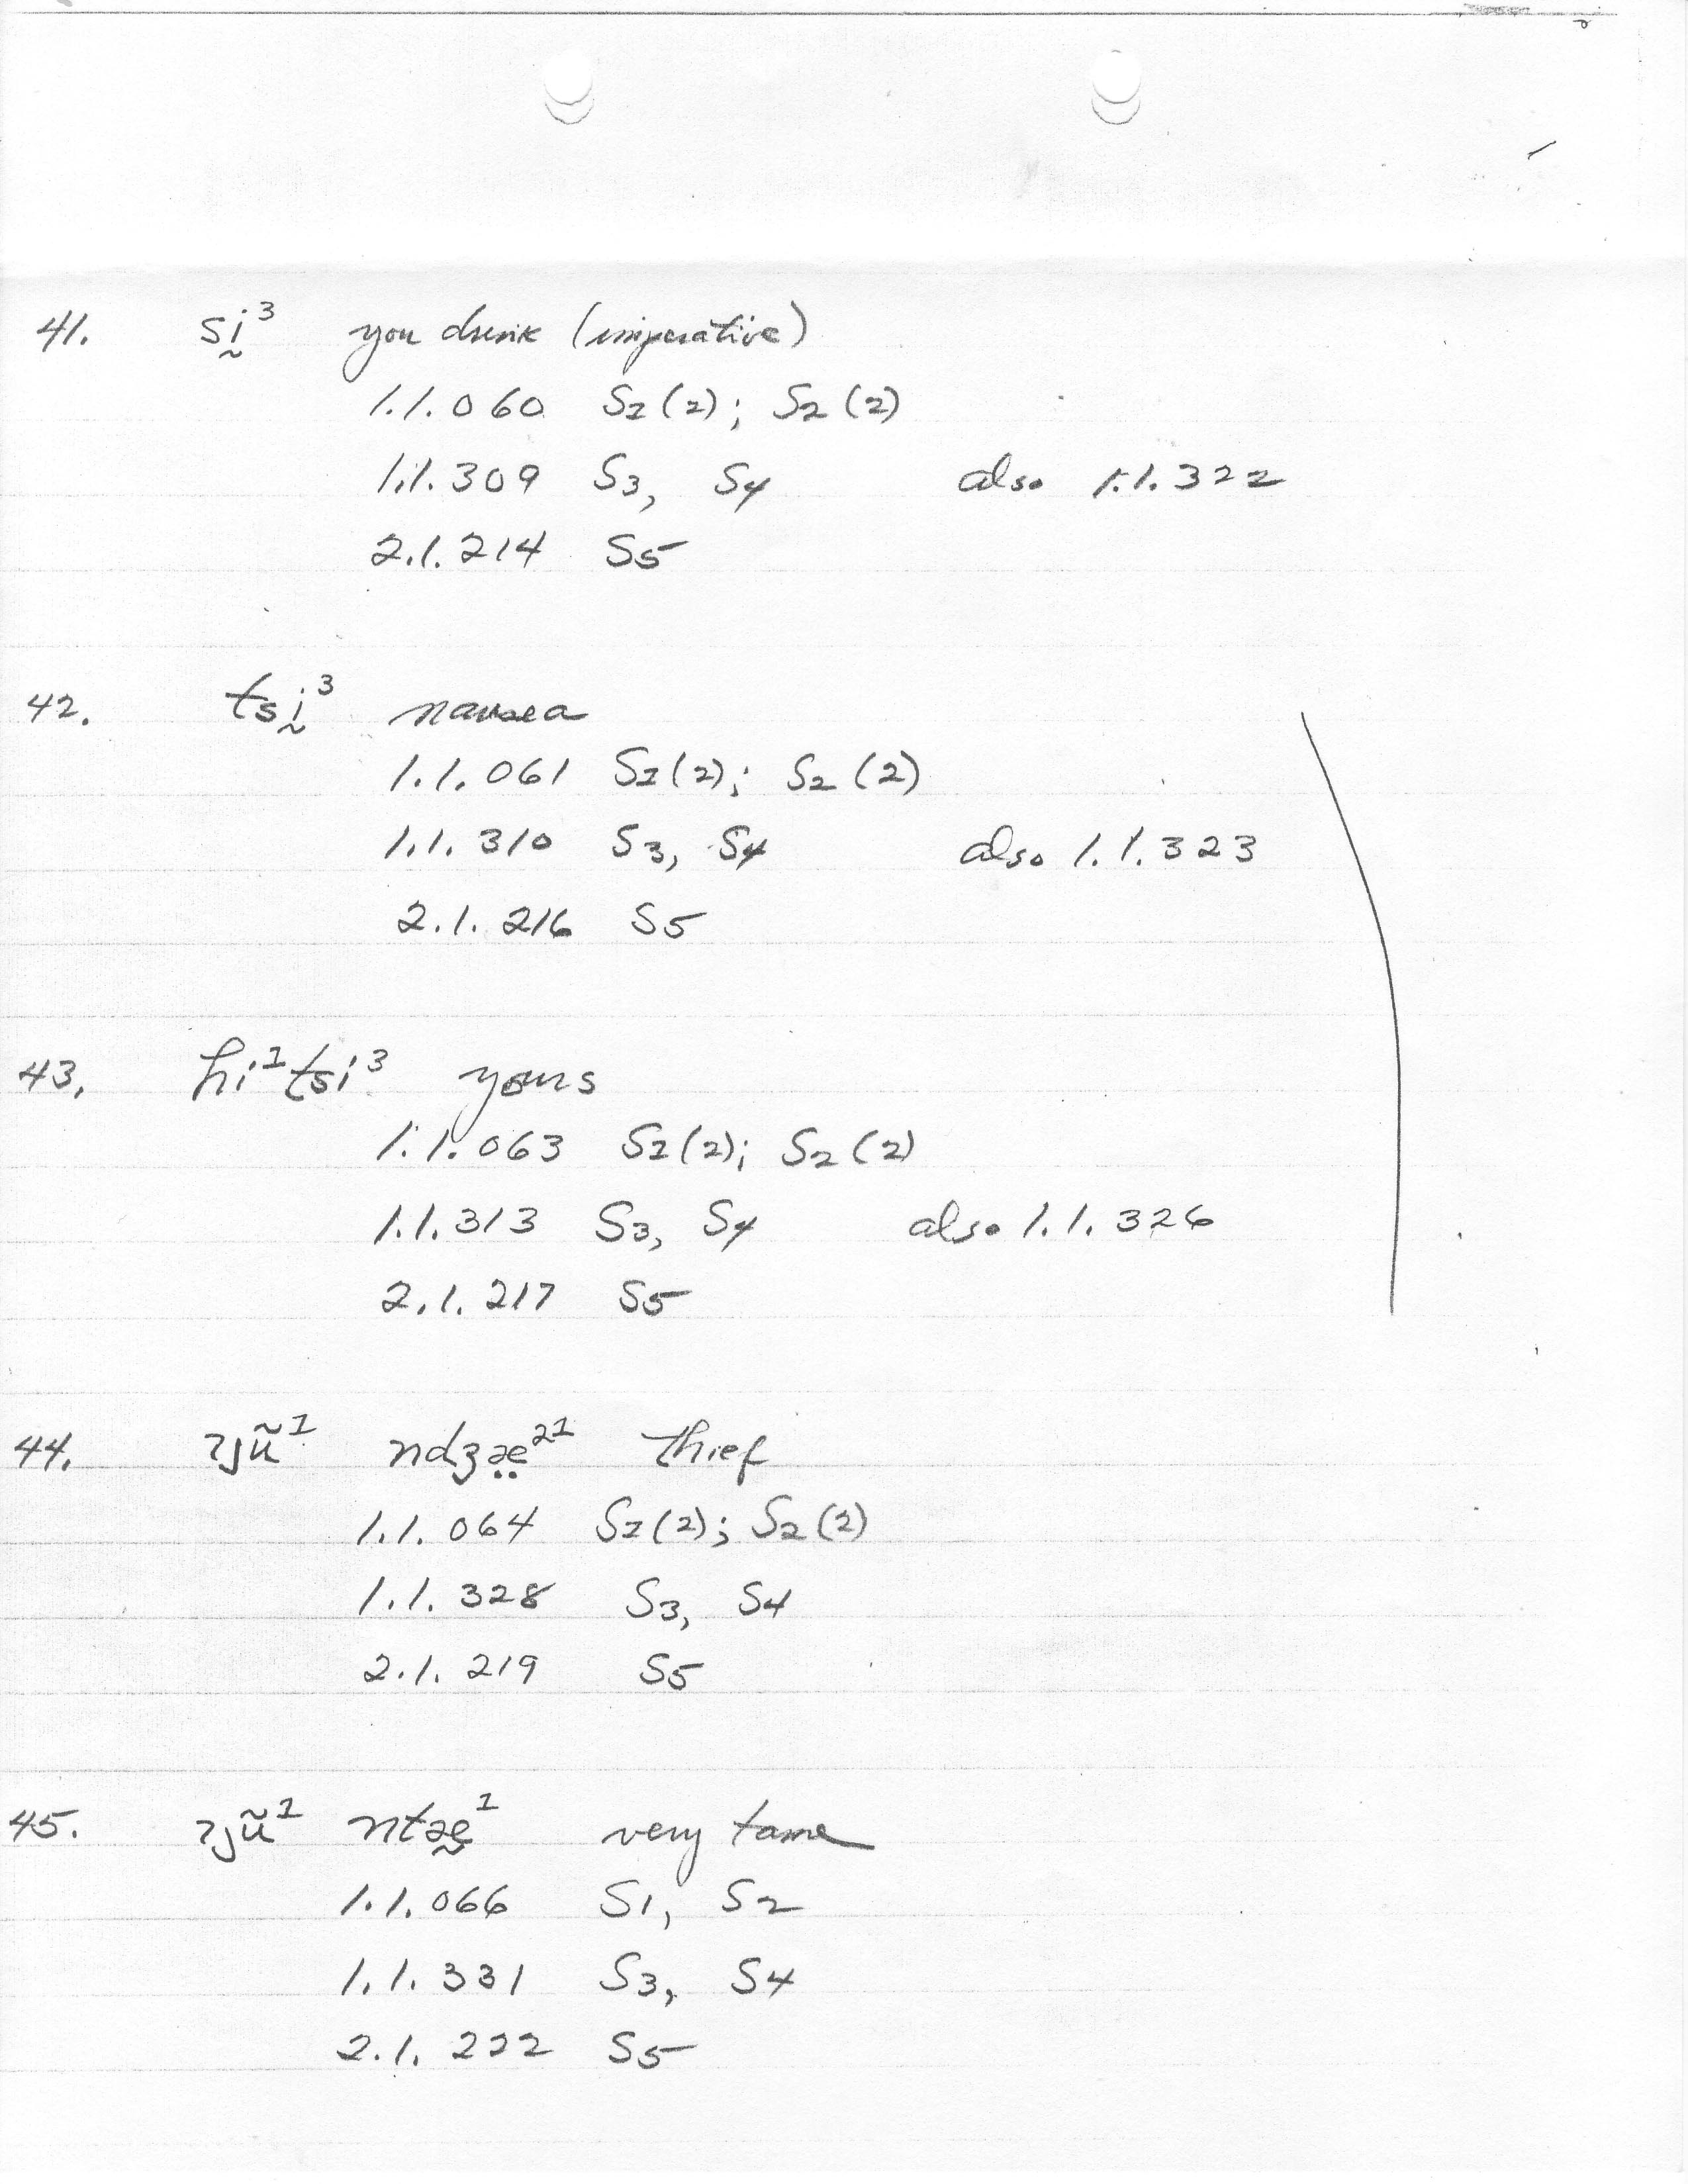 41. sḭ³ you drink (imperative)
1.1.060 S1(2); S2(2)
1.1.309 S3, S4 also 1.1.322
2.1.214 S5
42. tsḭ³ nausea
1.1.061 S1(2); S2(2)
1.1.310 S3, S4 also 1.1.323
2.1.216 S5
43. hi¹tsi³ yours
1.1.063 S1(2); S2(2)
1.1.313 S3, S4 also 1.1.326
2.1.217 S5
44. ʔjũ¹ ndʒæ̤²¹ thief
1.1.064 S1(2); S2(2)
1.1.328 S3, S4
2.1.219 S5
45. ʔjũ¹ ntæ̰¹ very tame
1.1.066 S1, S2
1.1.331 S3, S4
2.1.222 S5